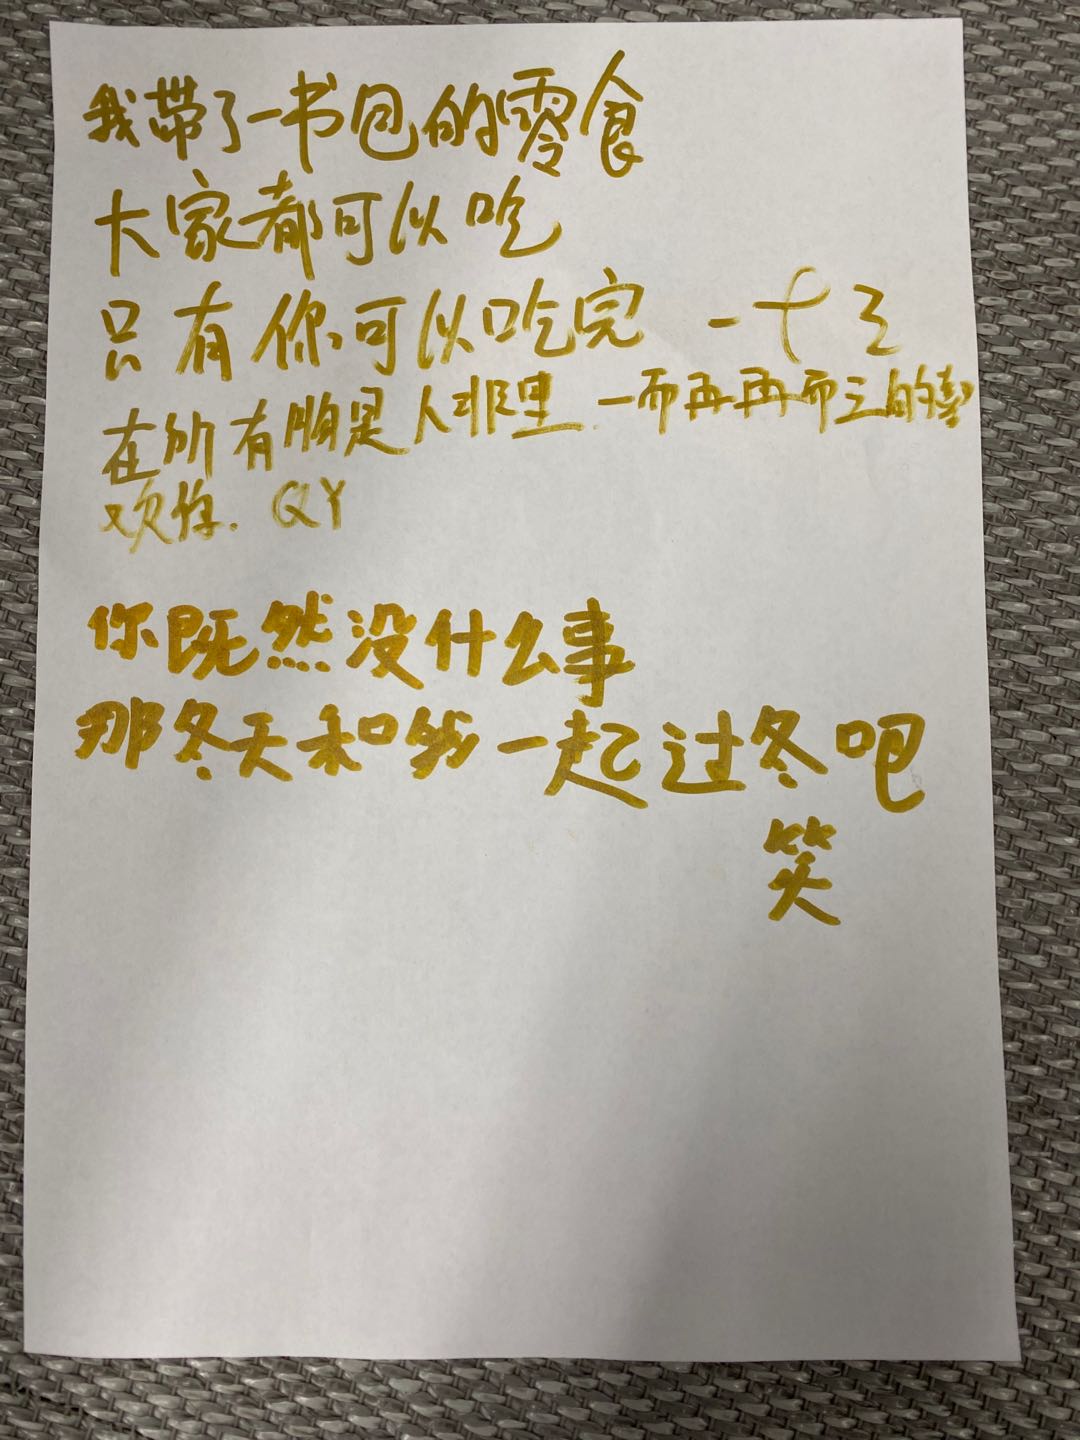 我带了一书包的零食
大家都可以吃
只有你可以吃完 一十三
在所有的是人非里 一而再再而三的喜
欢你. QY
你既然没什么事
那冬天和我一起过冬吧
笑